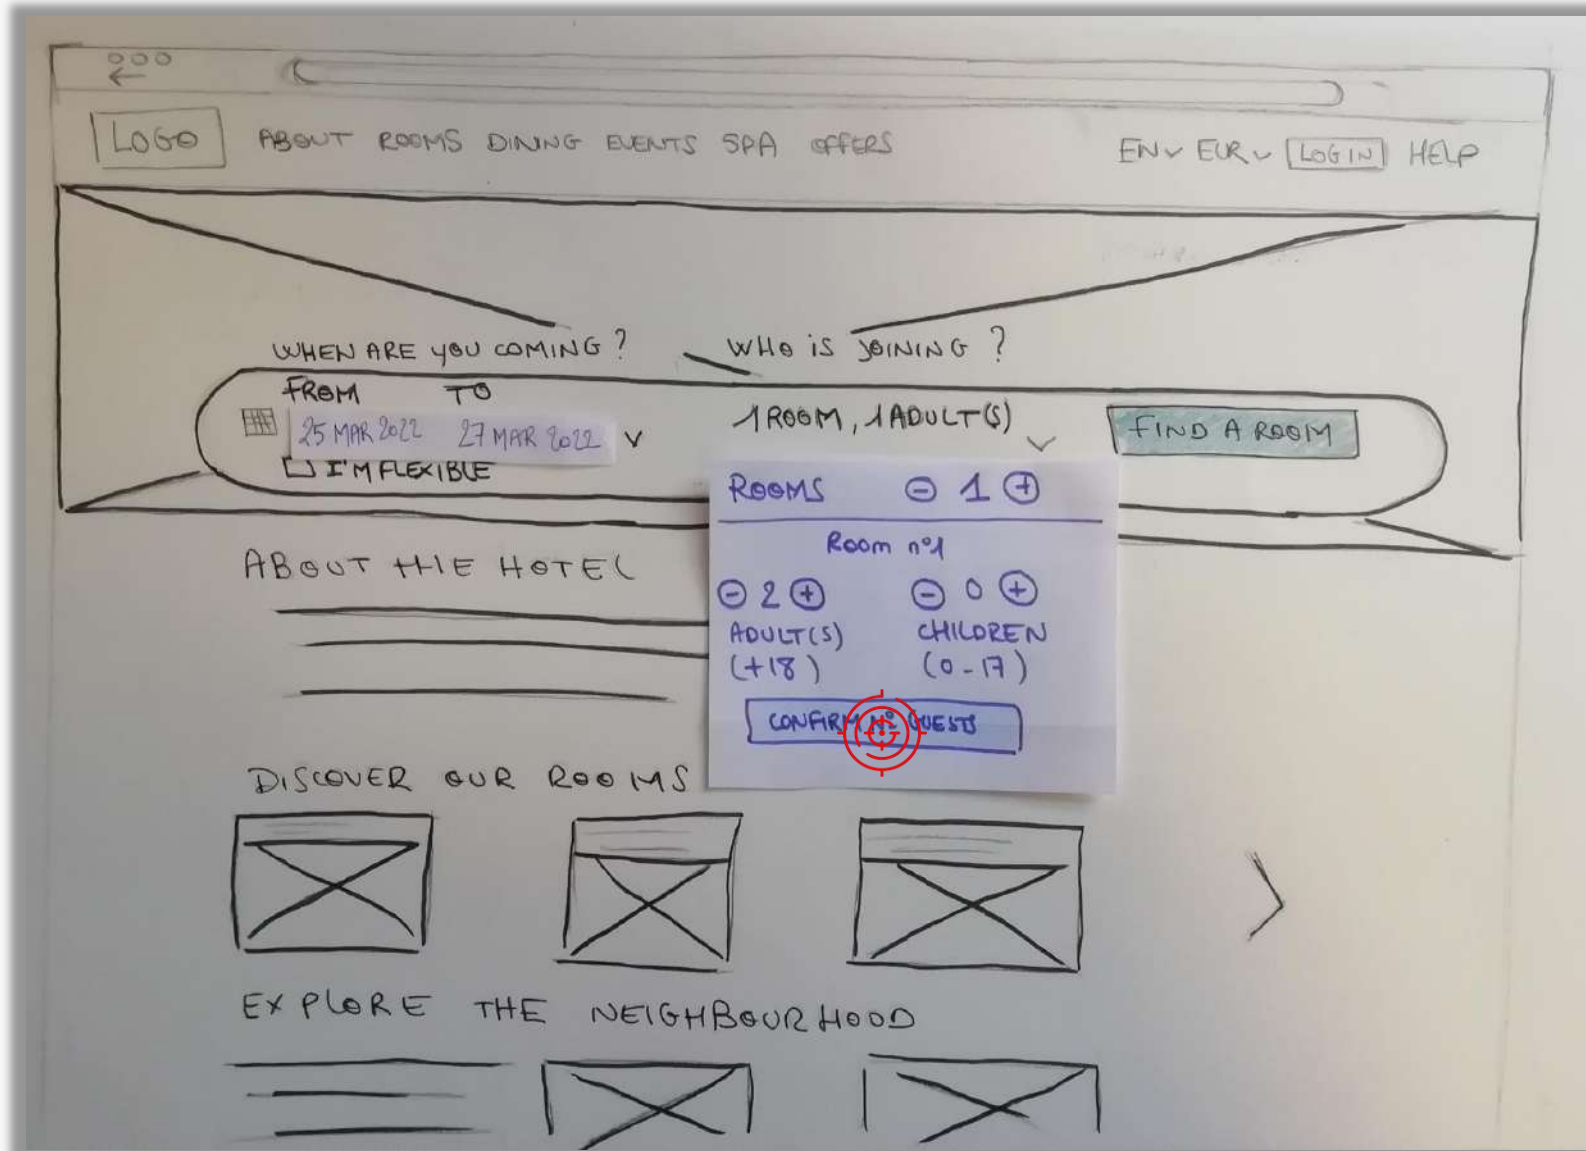 LOGO ABOUT ROOMS DINING EVENTS SPA OFFERS EN EUR LOGIN HELP
WHEN ARE YOU COMING? WHO IS JOINING?
FROM TO
25 MAR 2022 27 MAR 2022 1 ROOM, 1 ADULT(S) FIND A ROOM
I'M FLEXIBLE
ROOMS - 1 +
Room n°1
- 2 + - 0 +
ADULT(S) CHILDREN
(+18) (0-17)
CONFIRM N° GUESTS
ABOUT THE HOTEL
DISCOVER OUR ROOMS
EXPLORE THE NEIGHBOURHOOD